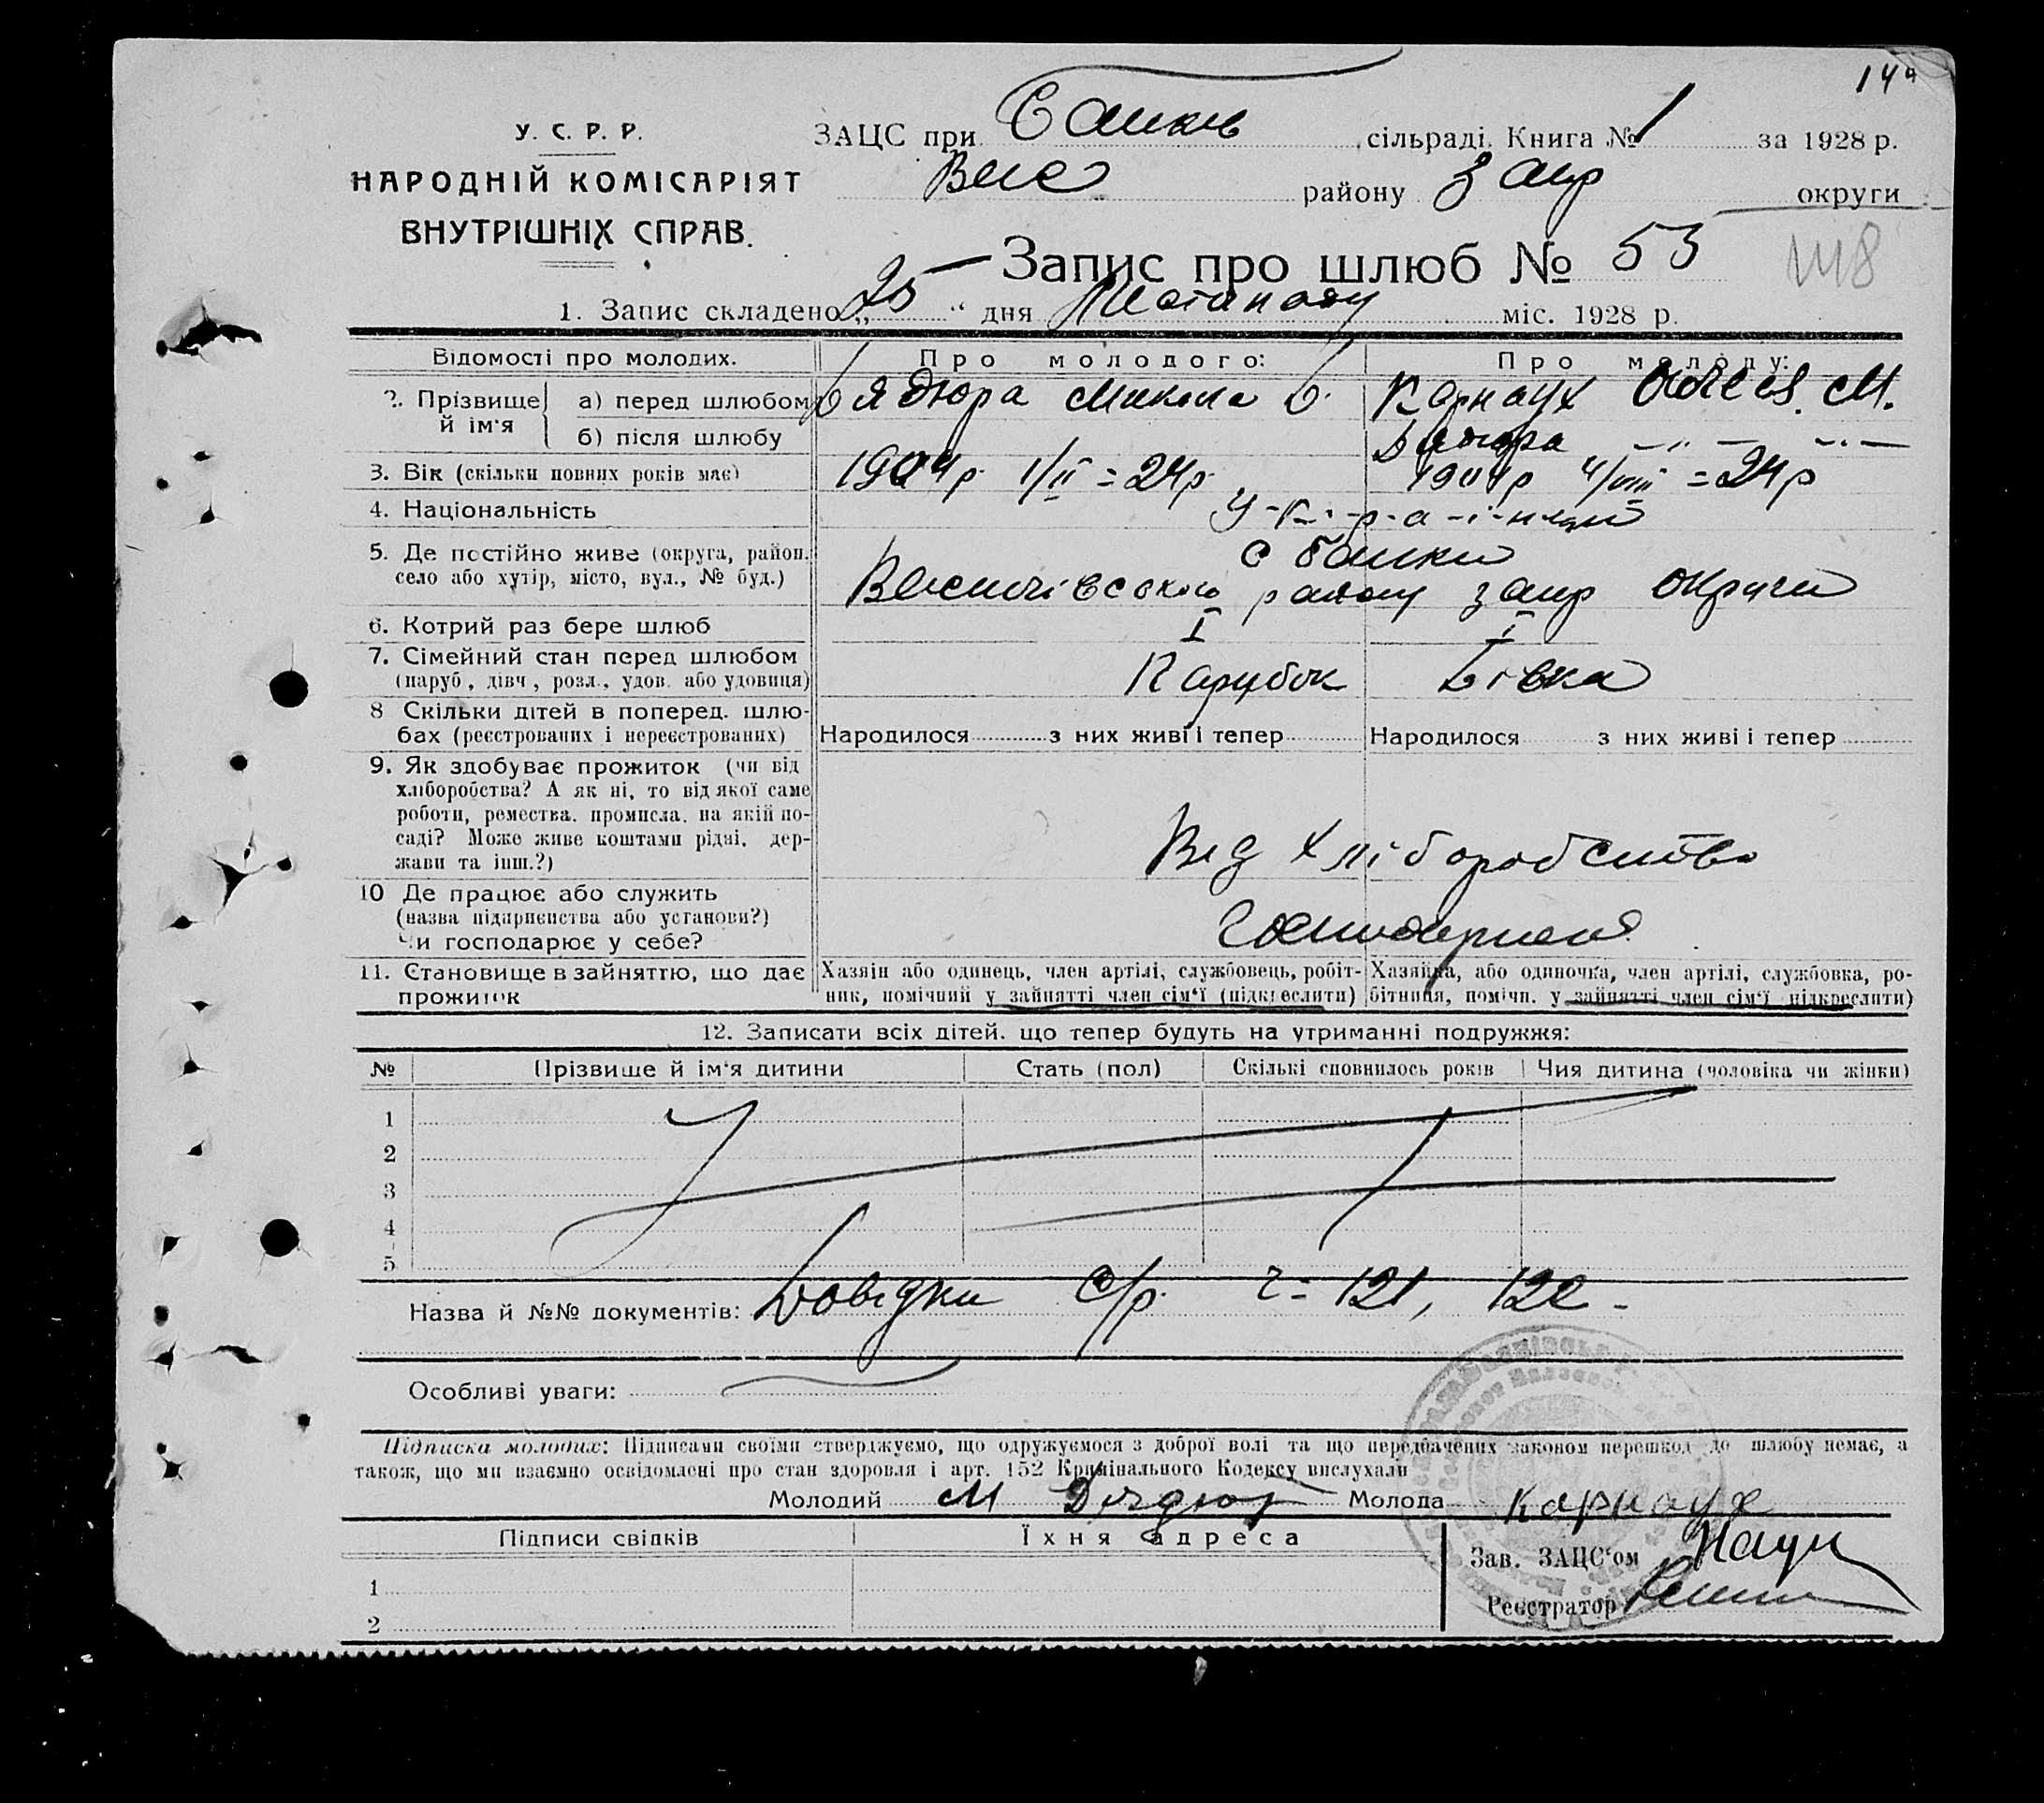 14а
У. С. Р. Р.
НАРОДНІЙ КОМІСАРІЯТ
ВНУТРІШНІХ СПРАВ.
ЗАЦС при сільраді. Книга № 1 за 1928 р.
Вас району Запр округи
Запис про шлюб № 53
1. Запис складено „25“ дня Листопаду міс. 1928 р.
Відомості про молодих. Про молодого: Про молоду:
2. Прізвище й ім'я
а) перед шлюбом Дядюра Микола Карнаух М.
б) після шлюбу Дядюра -"- -"-
3. Вік (скільки повних років має) 1904р 1/II = 24р. 1904р 4/VIII = 24р
4. Національність У-к-р-а-ї-нци
5. Де постійно живе (округа, район. с Балки
село або хутір, місто, вул., № буд.) Василівського району запр округи
6. Котрий раз бере шлюб I I
7. Сімейний стан перед шлюбом
(паруб, дівч, розл., удов. або удовиця) Парубок Дівка
8 Скільки дітей в поперед. шлю-
бах (реєстрованих і нереєстрованих) Народилося з них живі і тепер Народилося з них живі і тепер
9. Як здобуває прожиток (чи від
хліборобства? А як ні, то від якої саме
роботи, ремества. промисла. на якій по-
саді? Може живе коштами рідні, дер-
жави та інш.?) Від хліборобства
10 Де працює або служить
(назва підприємства або установи?)
Чи господарює у себе?
11. Становище в зайняттю, що дає
прожиток
Хазяїн або одинець, член артілі, службовець, робіт-
ник, помічний у зайнятті член сім'ї (підкреслити)
Хазяйка, або одиночка, член артілі, службовка, ро-
бітниця, помічн. у зайнятті член сім'ї підкреслити)
12. Записати всіх дітей. що тепер будуть на утриманні подружжя:
№ Прізвище й ім'я дитини Стать (пол) Скількі сповнилось років Чия дитина (чоловіка чи жінки)
1
2
3
4
5
Назва й №№ документів: Довідки с/р. ч= 121, 122 -
Особливі уваги:
Підписка молодих: Підписами своїми стверджуємо, що одружуємося з доброї волі та що передбачених законом перешкод до шлюбу немає, а
також, що ми взаємно освідомлені про стан здоровля і арт. 152 Крімінального Кодексу вислухали
Молодий М Дядюр Молода Карнаух
Підписи свідків Їхня адреса
Зав. ЗАЦС'ом
1
Реєстратор
2